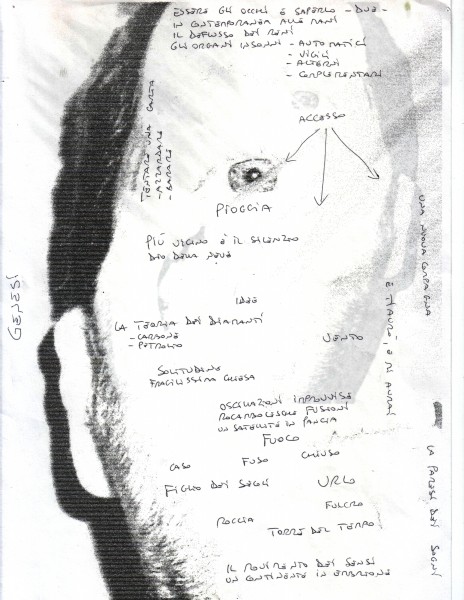 ESSERE GLI OCCHI E SAPERLO - DUE -
IN CONTEMPORANEA ALLE MANI
IL DEFLUSSO DEI RENI
GLI ORGANI INSONNI - AUTOMATICI
- VIGILI
- ALTERNI
- COMPLEMENTARI
TENTARE UNA CARTA
- AZZARDARE
- BARARE
ACCESSO
PIOGGIA
UNA NUOVA COMPAGNA
PIÙ VICINO È IL SILENZIO
DIO DELLA NEVE
GENESI
IDEE
LA TEORIA DEI DIAMANTI
- CARBONE
- PETROLIO
VENTO
SOLITUDINE
FRAGILISSIMA CHIESA
OSCILLAZIONI IMPROVVISE
ROCAMBOLESCHE FUSIONI
UN SATELLITE IN PANCIA
FUOCO
CASO
FUSO
CHIUSO
FIGLIO DEI SEGLI
URLO
FULCRO
ROCCIA
TORRE DEL TEMPO
LA PARESI DEI SOGNI
IL MOVIMENTO DEI SENSI
UN CONTINENTE IN ERUZIONE